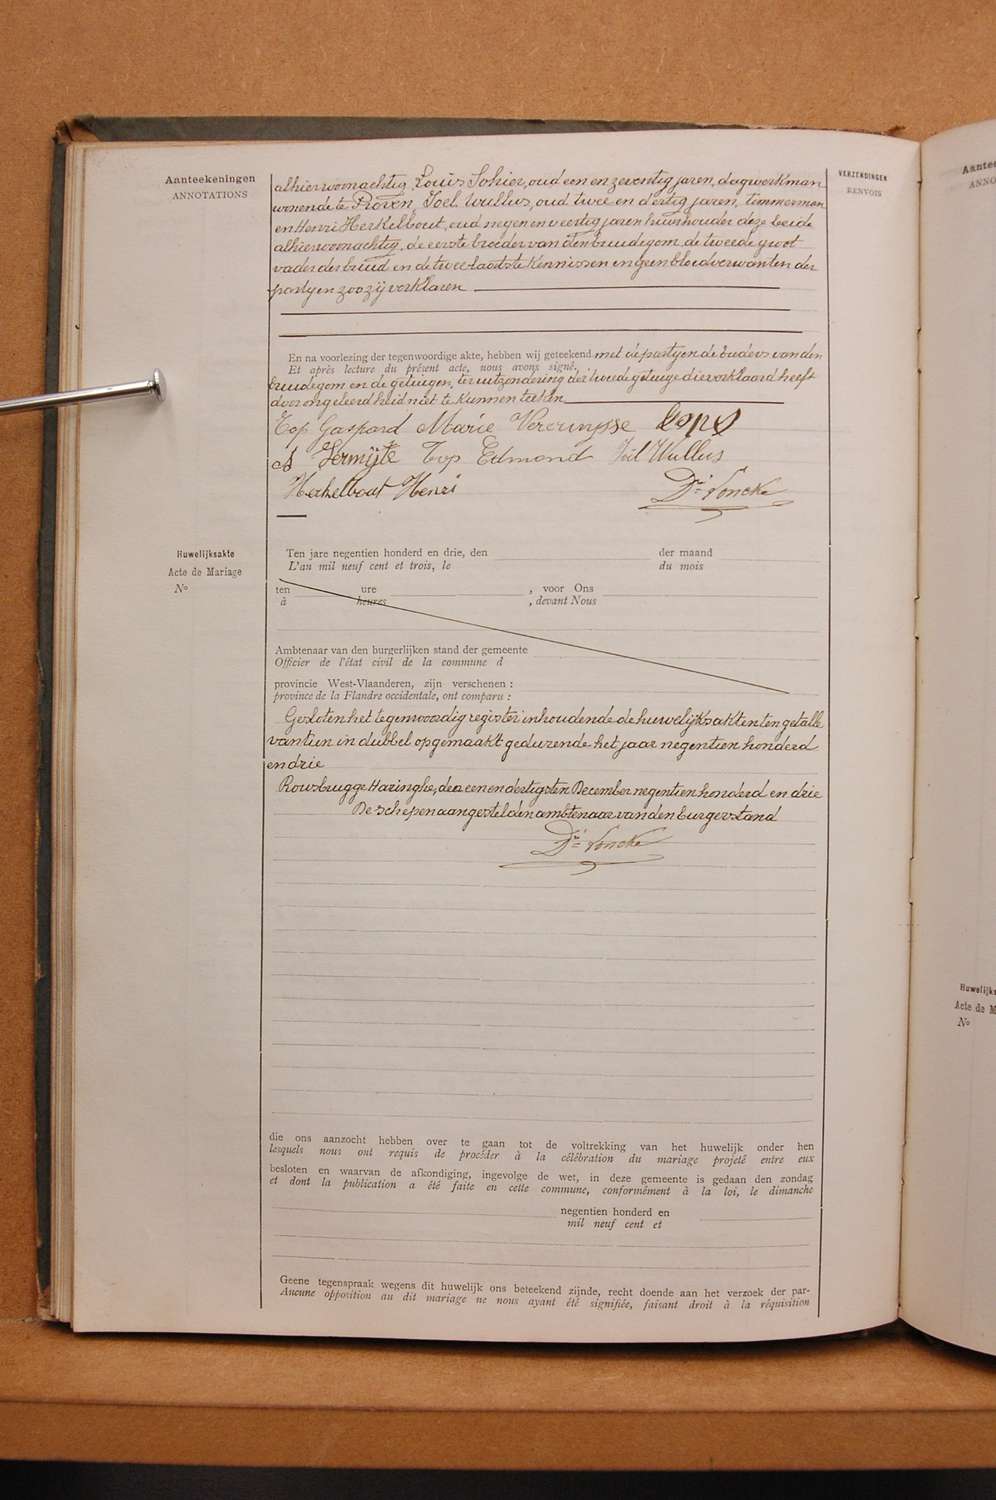 Aanteekeningen
ANNOTATIONS
VERZENDINGEN
RENVOIS
alhier woonachtig, Louis Sohier, oud een en zeventig jaren, dagwerkman
wonende te Proven, Joel Wullus, oud twee en dertig jaren, timmerman
en Henri Herkelbout, oud negen en veertig jaren huishouder deze beide
alhier woonachtig, de eerste broeder van den bruidegom de tweede groot
vader der bruid en de twee laatste kennissen en geen bloedverwanten der
partyen zoo zij verklaren
En na voorlezing der tegenwoordige akte, hebben wij geteekend met de partyen de broeders van den
Et après lecture du présent acte, nous avons signé,
bruidegom en de getuigen, ter uitzondering der tweede getuige die verklaard heeft
door ongeleerdheid niet te kunnen teeken
Top Gaspard Marie Vercruysse
Vermijte Top Edmond Joël Wullus
Herkelbout Henri Dr Voncke
Huwelijksakte
Acte de Mariage
No
Ten jare negentien honderd en drie, den der maand
L'an mil neuf cent et trois, le du mois
ten ure , voor Ons
à heures , devant Nous
Ambtenaar van den burgerlijken stand der gemeente
Officier de l'état civil de la commune d
provincie West-Vlaanderen, zijn verschenen :
province de la Flandre occidentale, ont comparu :
Gesloten het tegenwoordig register inhoudende de huwelijksakten ten getalle
van tien in dubbel opgemaakt gedurende het jaar negentien honderd
en drie
Rousbrugge Haringhe, den een en dertigsten December negentien honderd en drie
De schepen aangestelden ambtenaar van den burgerstand
Dr Voncke
die ons aanzocht hebben over te gaan tot de voltrekking van het huwelijk onder hen
lesquels nous ont requis de procéder à la célébration du mariage projeté entre eux
besloten en waarvan de afkondiging, ingevolge de wet, in deze gemeente is gedaan den zondag
et dont la publication a été faite en cette commune, conformément à la loi, le dimanche
negentien honderd en
mil neuf cent et
Geene tegenspraak wegens dit huwelijk ons beteekend zijnde, recht doende aan het verzoek der par-
Aucune opposition au dit mariage ne nous ayant été signifiée, faisant droit à la réquisition
Huwelijks
Acte de M
No